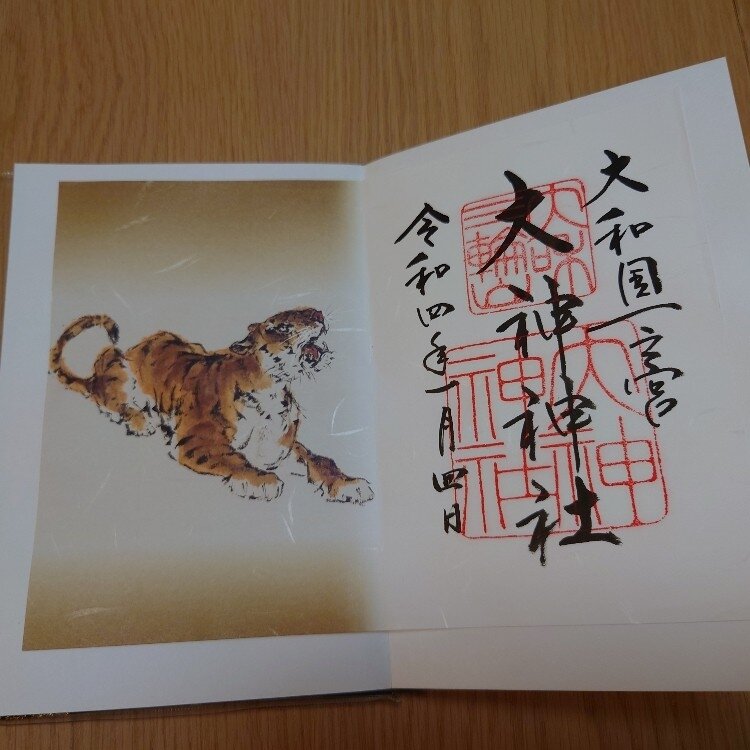 大和国一之宮
大神神社
令和四年一月四日
大和
三輪山
大神
神社